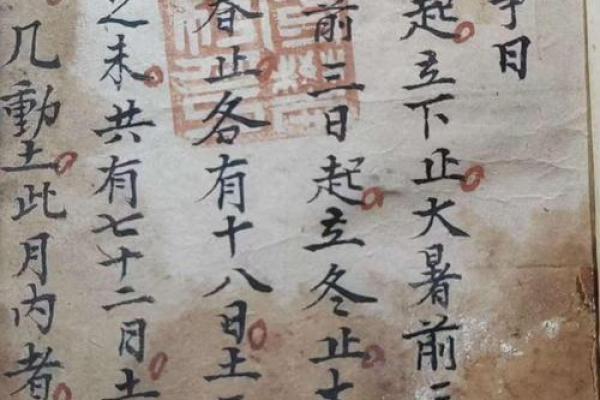 日
起立下止大暑前
前三日起立冬止
春止各有十八日土
之未共有七十二月土
几動土此月内者